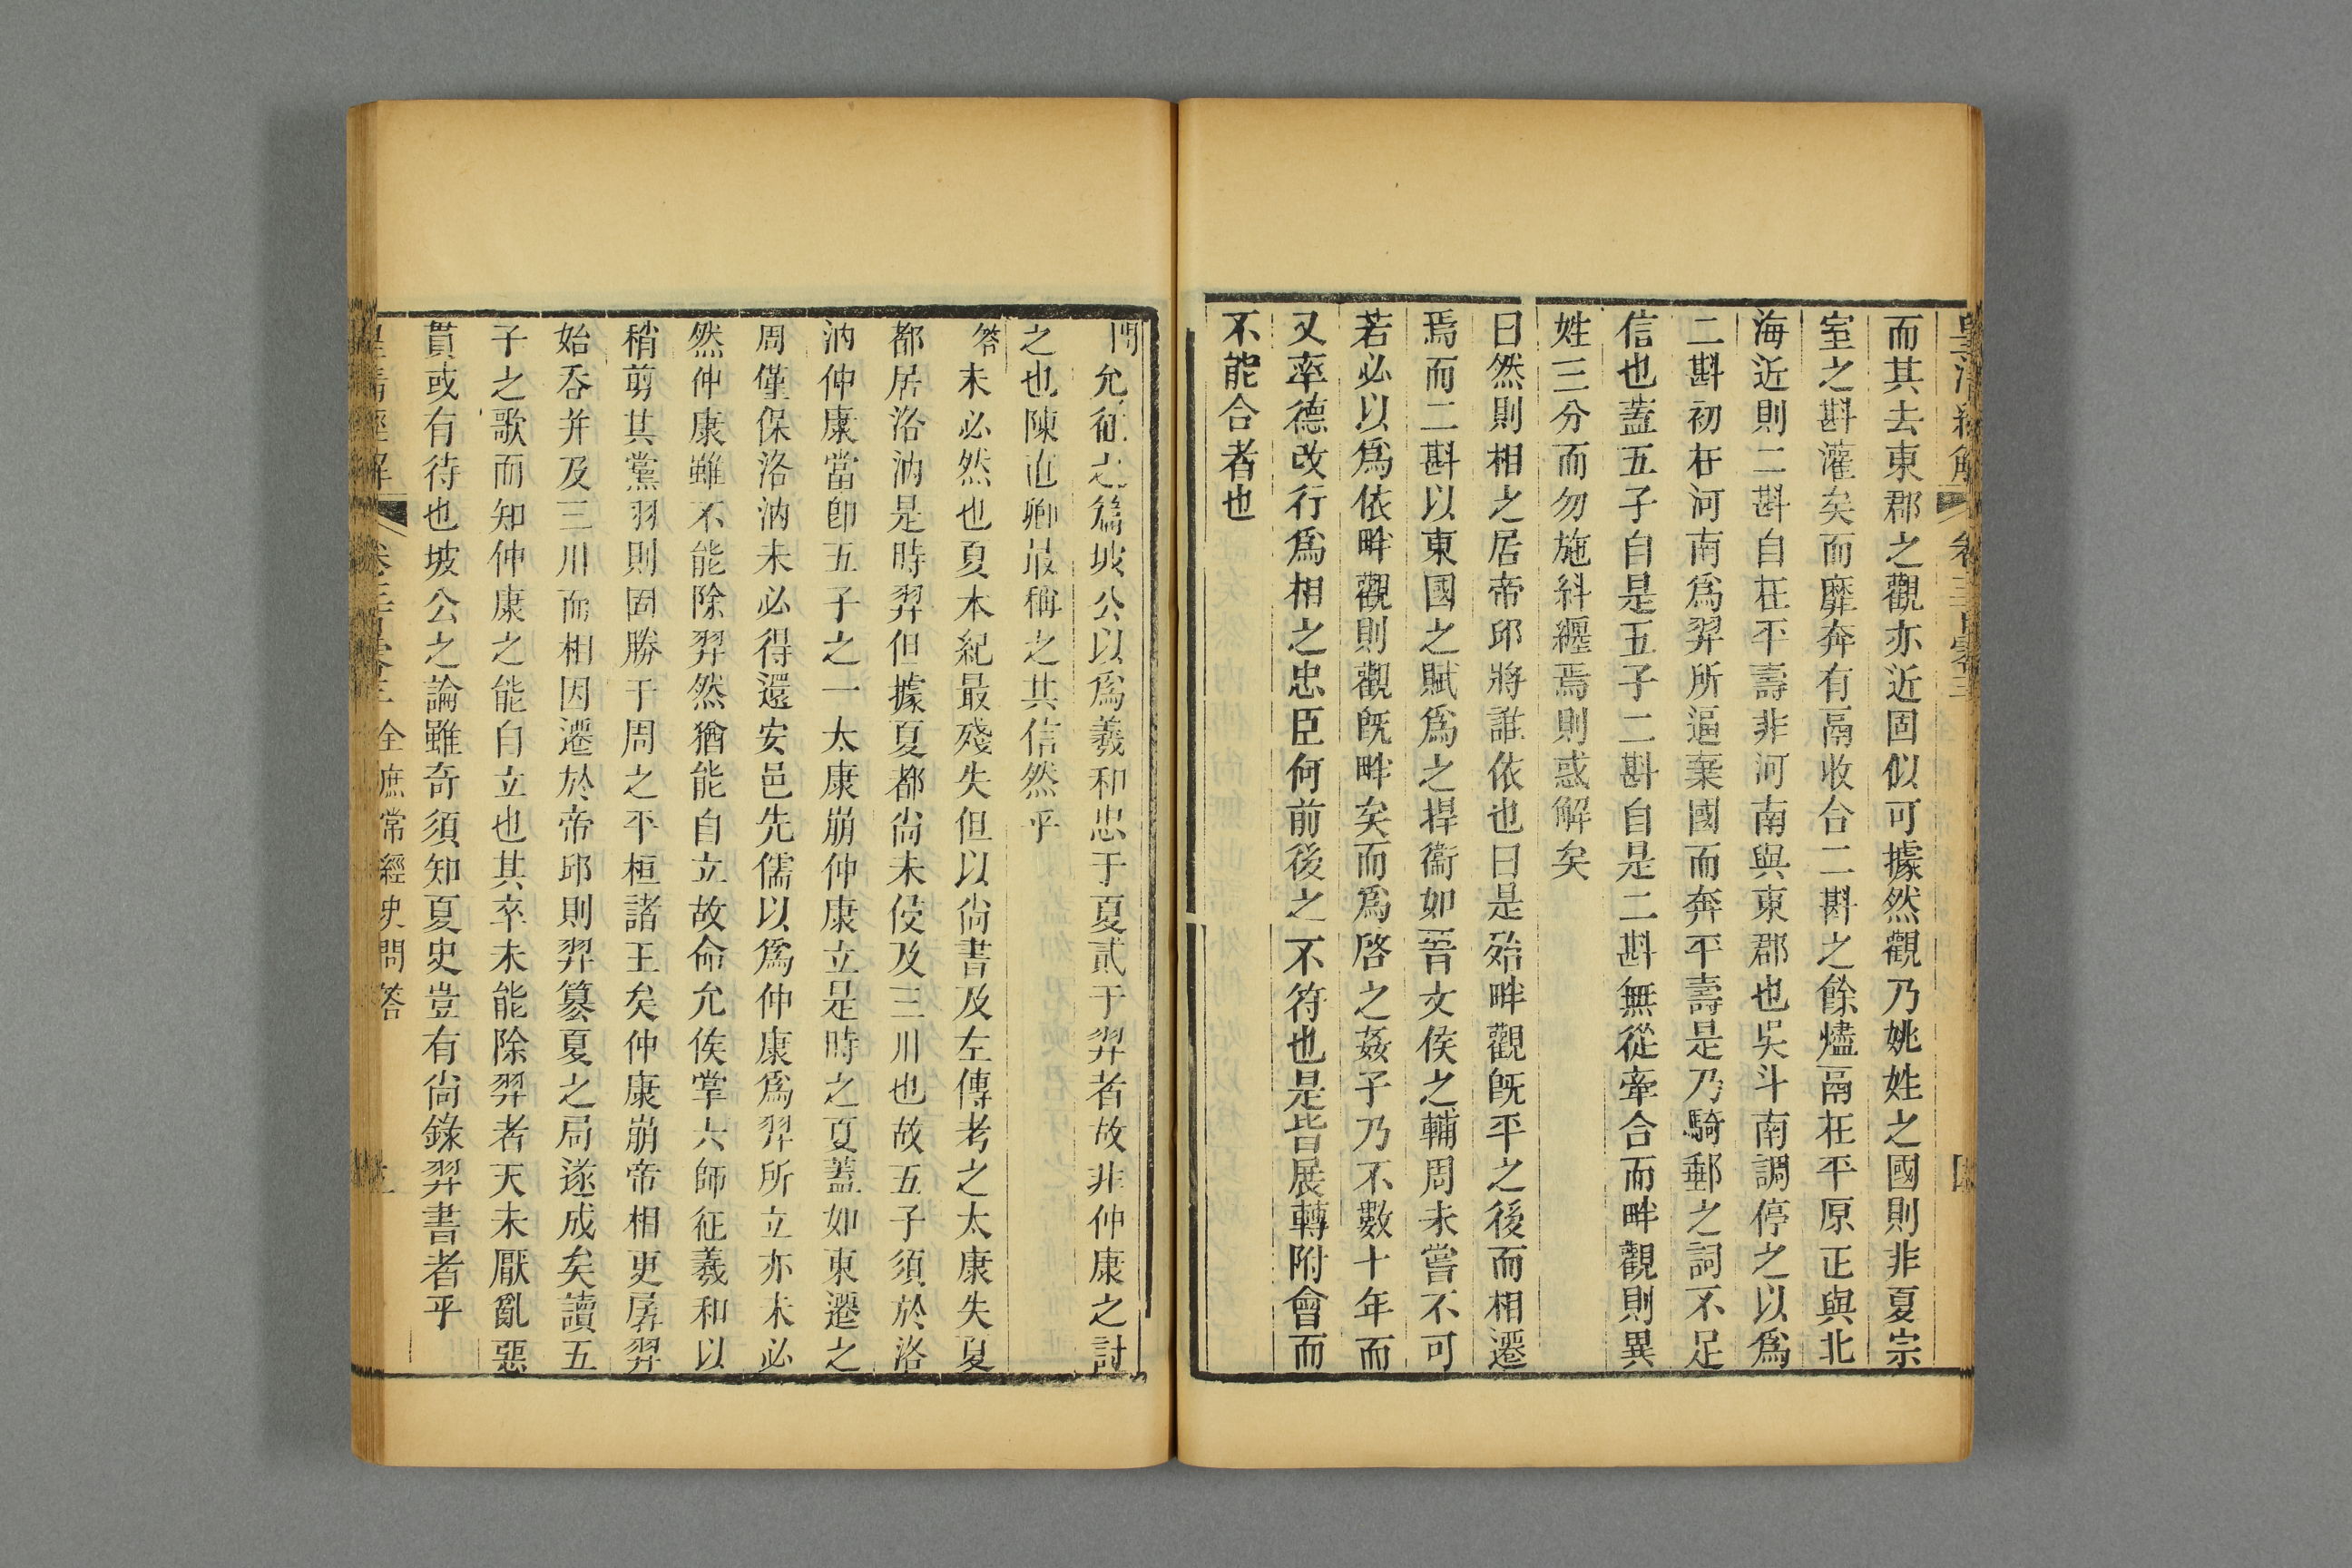 皇清經解 卷三百零三
而其去東郡之觀亦近固似可據然觀乃姚姓之國則非夏宗
室之斟灌矣而靡奔有鬲收合二斟之餘燼鬲在平原正與北
海近則二斟自在平壽非河南與東郡也吳斗南調停之以爲
二斟初在河南爲羿所逼棄國而奔平壽是乃騎郵之詞不足
信也蓋五子自是五子二斟自是二斟無從牽合而畔觀則異
姓三分而勿施糾纆焉則惑解矣
曰然則相之居帝邱將誰依也曰是殆畔觀旣平之後而相遷
焉而二斟以東國之賦爲之捍衞如晉文侯之輔周未嘗不可
若必以爲依畔觀則觀旣畔矣而爲啓之姦子乃不數十年而
又率德改行爲相之忠臣何前後之不符也是皆展轉附會而
不能合者也
問允征之篇坡公以爲羲和忠于夏貳于羿者故非仲康之討
之也陳直卿最稱之其信然乎
答未必然也夏本紀最殘失但以尙書及左傳考之太康失夏
都居洛汭是時羿但據夏都尙未侵及三川也故五子須於洛
汭仲康當卽五子之一太康崩仲康立是時之夏蓋如東遷之
周僅保洛汭未必得還安邑先儒以爲仲康爲羿所立亦未必
然仲康雖不能除羿然猶能自立故命允侯掌六師征羲和以
稍剪其黨羽則固勝于周之平桓諸王矣仲康崩帝相更孱羿
始呑并及三川而相因遷於帝邱則羿簒夏之局遂成矣讀五
子之歌而知仲康之能自立也其卒未能除羿者天未厭亂惡
貫或有待也坡公之論雖奇須知夏史豈有尙錄羿書者乎
皇清經解 卷三百零三 全庶常經史問答